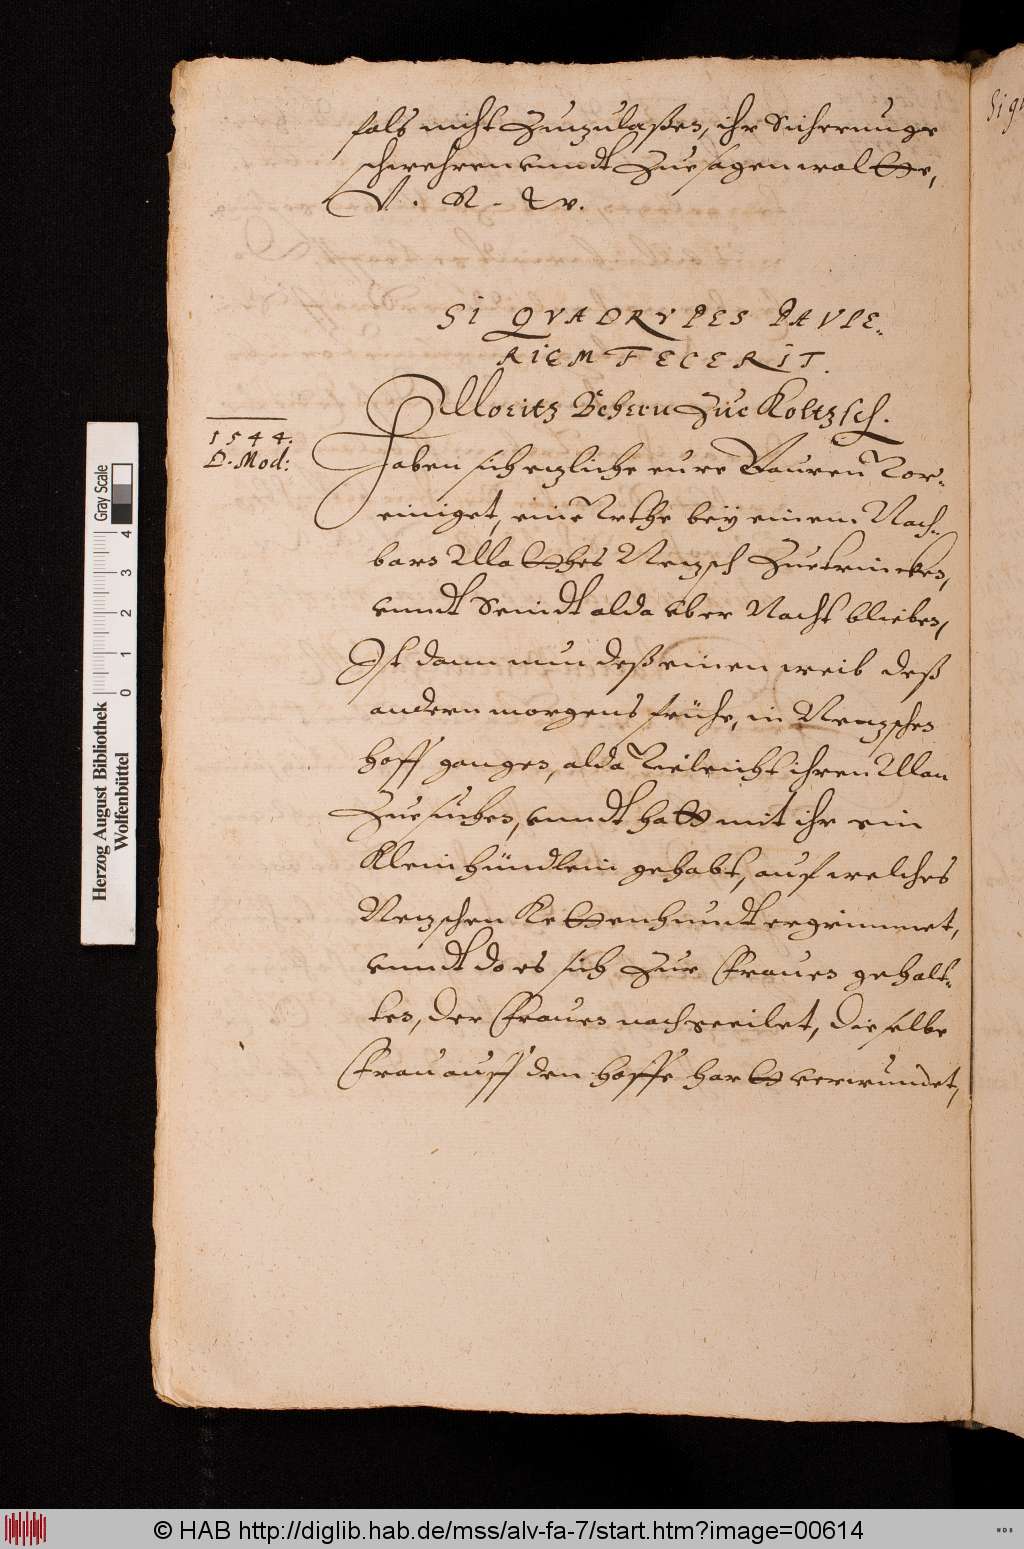 fals nicht Zuuzulaßen, ihr Sicherunge
schwehren vnndt Zuesagen woltte,
V. R. &. v.
SI QVADRVPES PAVPE-
RIEM FECERIT.
Moritz Bchern Züe Koltzsch.
1544.
D. Mod:
Haben sich etzliche eure Bauren Vor-
einiget, eine Vrthe beÿ einem Nach-
barn Matthes Nenzsch Zuetrincken,
vnndt Seindt alda vber Nacht blieben,
Ist dann nun deß einen weib deß
andern morgens frühe, in Nenzschen
hoff gangen, alda Vieleicht ihren Man
Zuesuchen, vnndt hatt mit ihr ein
Klein hündlein gehabt, auf welches
Nenzschen Kettenhundt ergrimmet,
vnndt do es sich Zur Frauen gehalt-
ten, der Frauen nachgeeilet, dieselbe
Frau auff den hoffe hartt verwundet,
Herzog August Bibliothek
Wolfenbüttel
Gray Scale
0 1 2 3 4
© HAB http://diglib.hab.de/mss/alv-fa-7/start.htm?image=00614